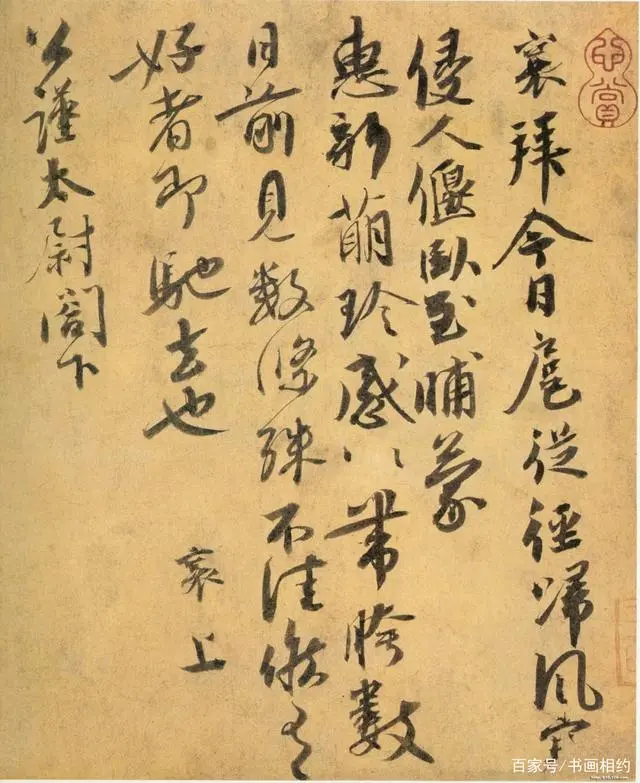 襄拜今日扈從徑歸風寒
侵人偃臥至晡蒙
惠新萌珍感〻帶胯數
日前見數條殊不佳候有
好者即馳去也
襄上
公謹太尉閤下
百家号/书画相约